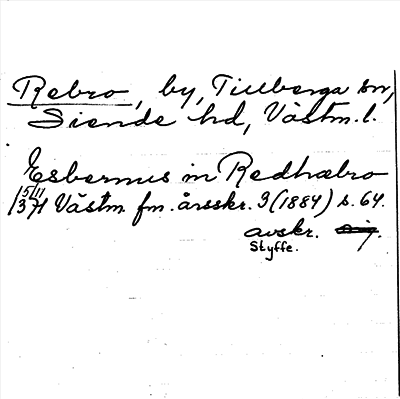 Rebro, by, Tillberga sn,
Siende hd, Västm. l.
Esbernus in Redhæbro
15/11 1371 Västm fm. årsskr. 3 (1884) s. 64.
avskr.
Styffe.